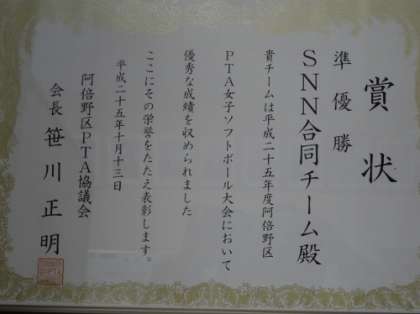 賞状
準優勝
SNN合同チーム殿
貴チームは平成二十五年度阿倍野区
PTA女子ソフトボール大会において
優秀な成績を収められました
ここにその栄誉をたたえ表彰します。
平成二十五年十月十三日
阿倍野区PTA協議会
会長 笹川正明